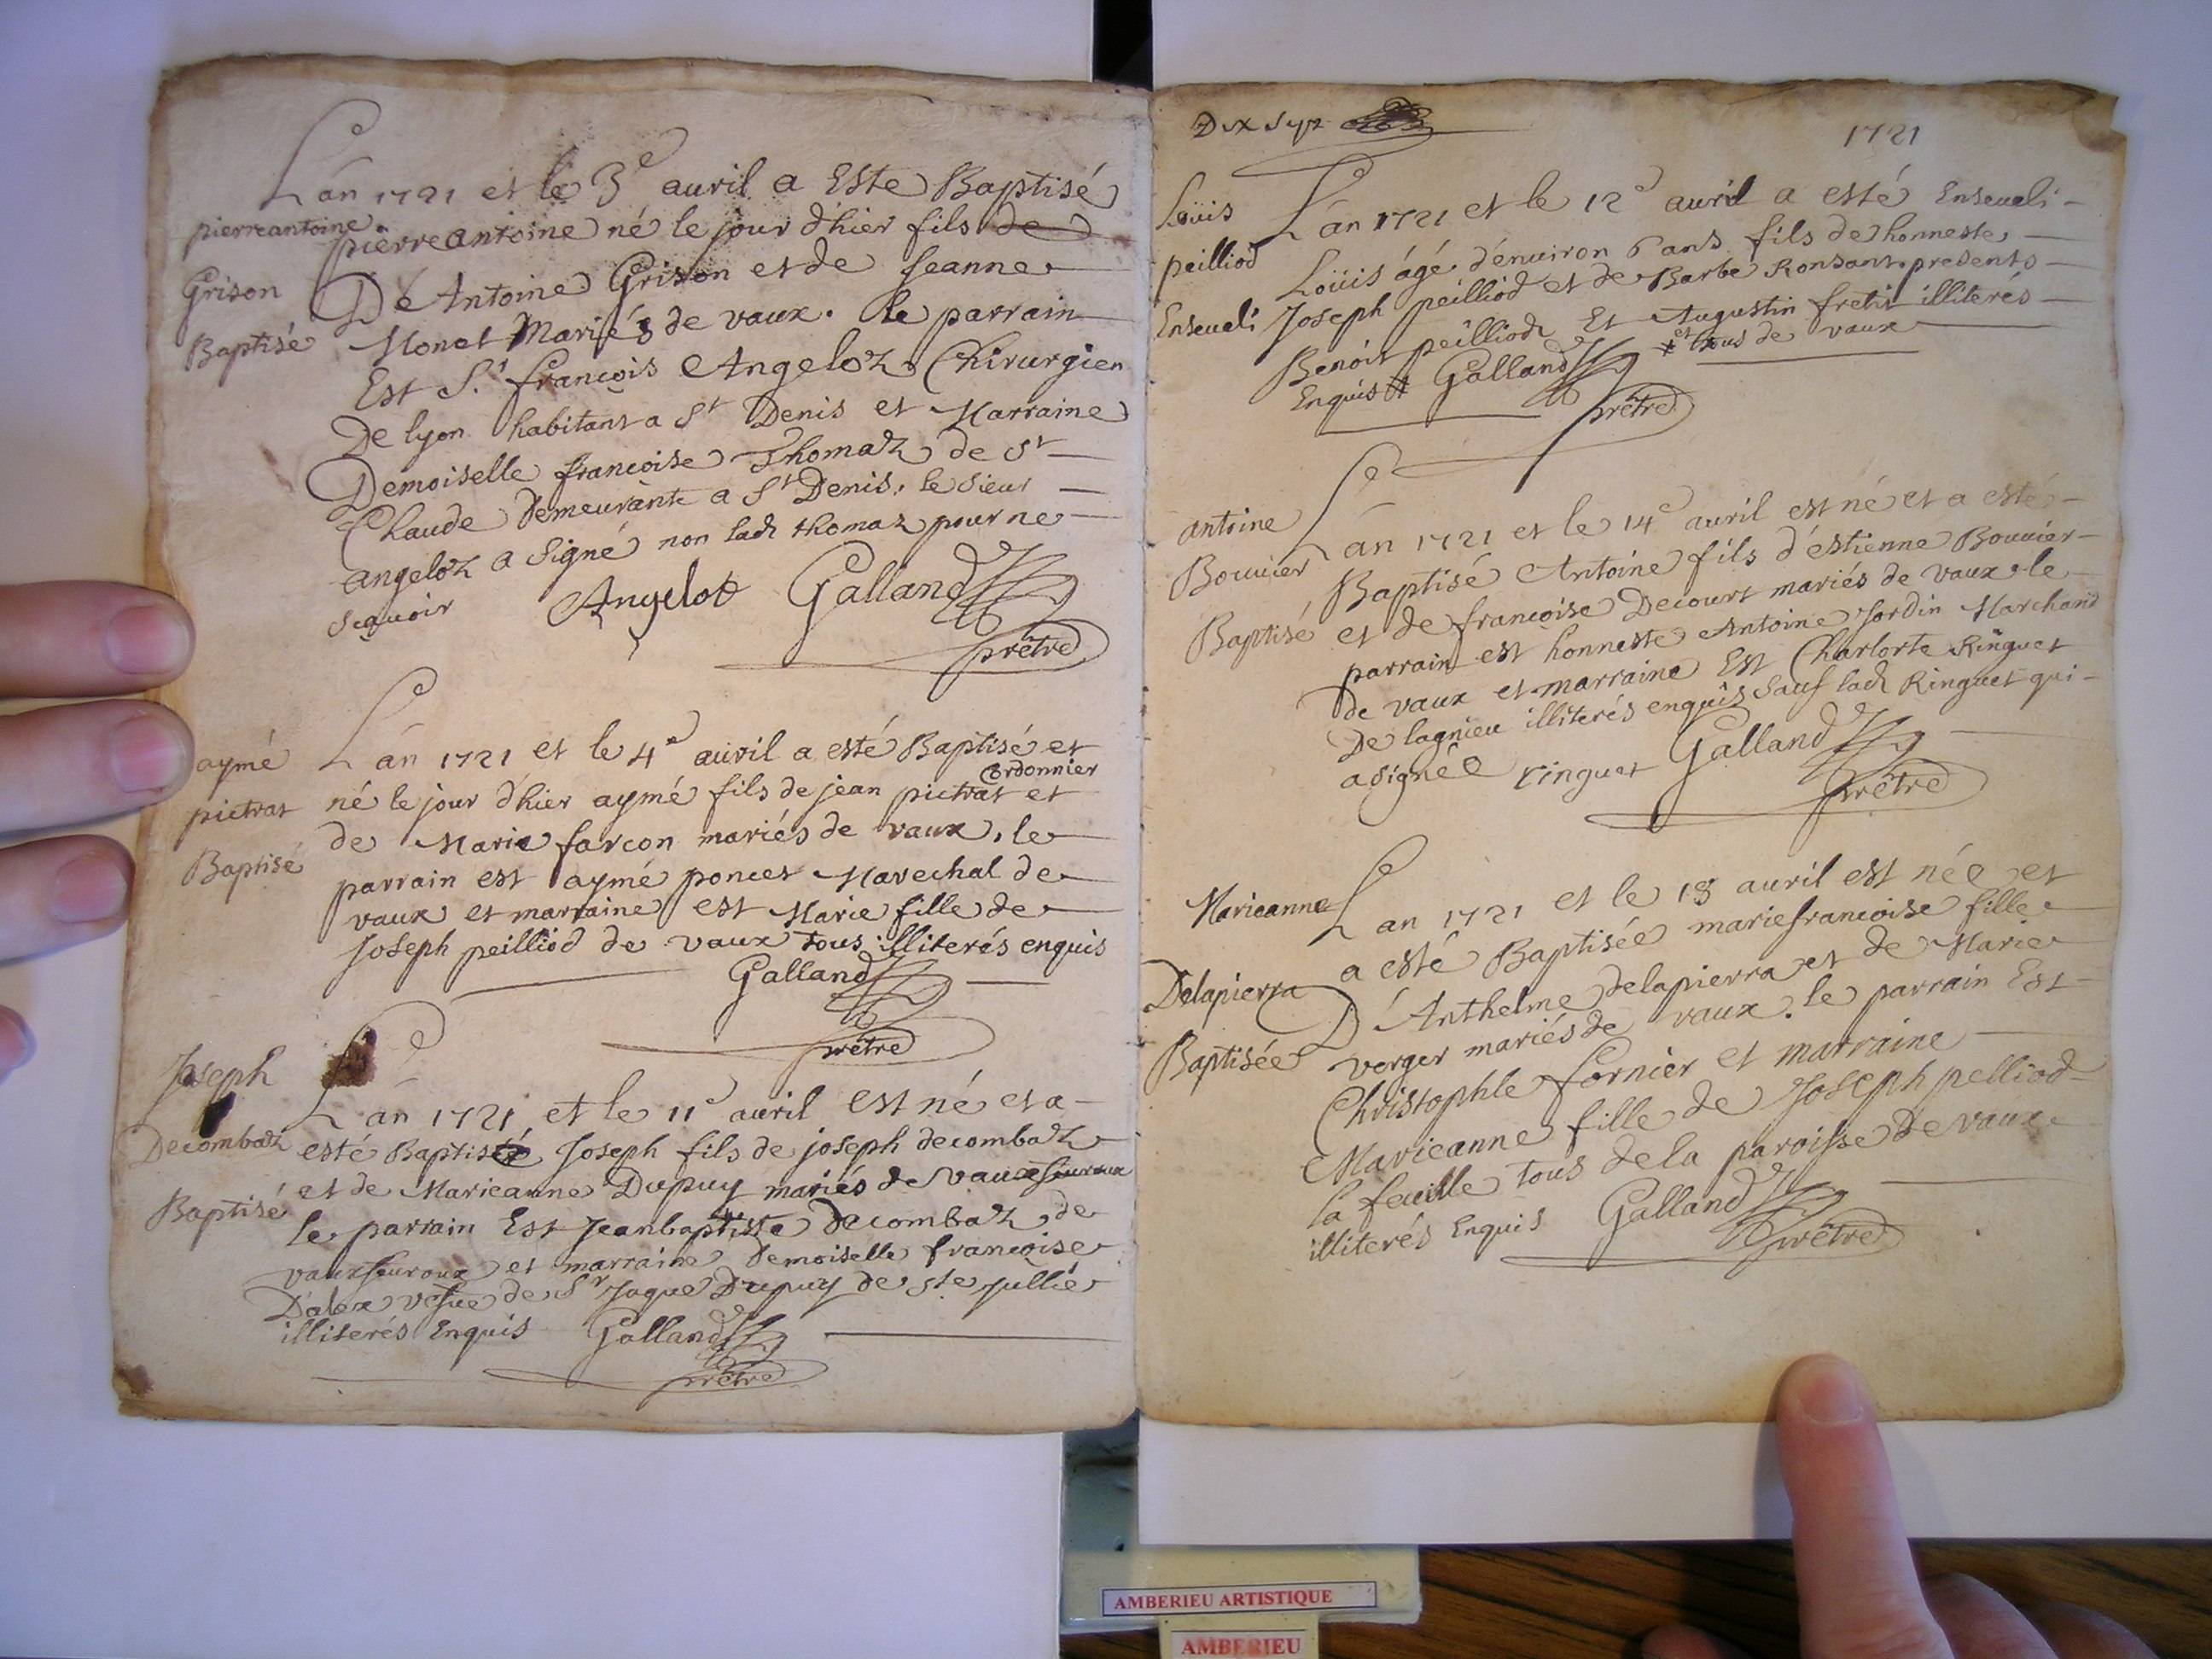 L'an 1721 et le 3e auril a Este Baptisé
pierreantoine
pierreantoine né le jour d'hier fils de
Grison
De Antoine Grison et de Jeanne
Baptisé
Monet Mariés de vaux. le parrain
Est Sr. françois Angeloz Chirurgien
De lyon habitant a St Denis et Marraine
Demoiselle françoise Thomaz de St
Claude demeurante a St Denis, le Sieur
angeloz a Signé non lad Thomaz pour ne
Sçauoir Angelot Galland
prêtre
aymé
L'an 1721 et le 4e auril a esté Baptisé et
Cordonnier
pietrat
né le jour d'hier aymé fils de jean pietrat et
de Marie farcon mariés de vaux, le
Baptisé
parrain est aymé poncet Marechal de
vaux et marraine est Marie fille de
Joseph peilliod de vaux tous illiterés enquis
Galland
prêtre
Joseph
L'an 1721 et le 11e auril est né et a
Decombaz
esté Baptisé Joseph fils de joseph decombaz
et de Marieanne Dupuy mariés de Vauxfeuroux
Baptisé
le parrain Est Jeanbaptiste decombaz de
vauxfeuroux et marraine demoiselle françoise
Dalex vefue de Sr Jaque Dupuy de ste jullie
illiterés Enquis Galland
prêtre
Dix Sept
1721
Loüis
L'an 1721 et le 12e auril a esté Enseueli
peilliod
Loüis âgé d'enuiron 6 ans fils de honneste
Enseueli
Joseph peilliod et de Barbe Ronsant presents
Benoit peilliod Et Augustin fretit illiterés
Enquis # Galland # et tous de vaux
prêtre
antoine
L'an 1721 et le 14e auril est né et a esté
Bouuier
Baptisé Antoine fils d'estienne Bouuier
Baptisé
et de françoise Decourt mariés de vaux le
parrain est honneste Antoine Jordin Marchand
de vaux et marraine Est Charlorte Ringuet
De lagnieu illiterés enquis Sauf lad Ringuet qui
a signée ringuet Galland
prêtre
Marieanne
L'an 1721 et le 18 auril est née et
a esté Baptisée mariefrancoise fille
Delapierra
D'Anthelme delapierra et de Marie
Baptisée
verger mariés de vaux. le parrain Est
Christophle fornier et marraine
Marieanne fille de Joseph pelliod
la feuille tous de la paroisse de vaux
illiterés Enquis Galland
prêtre
AMBERIEU ARTISTIQUE
AMBERIEU